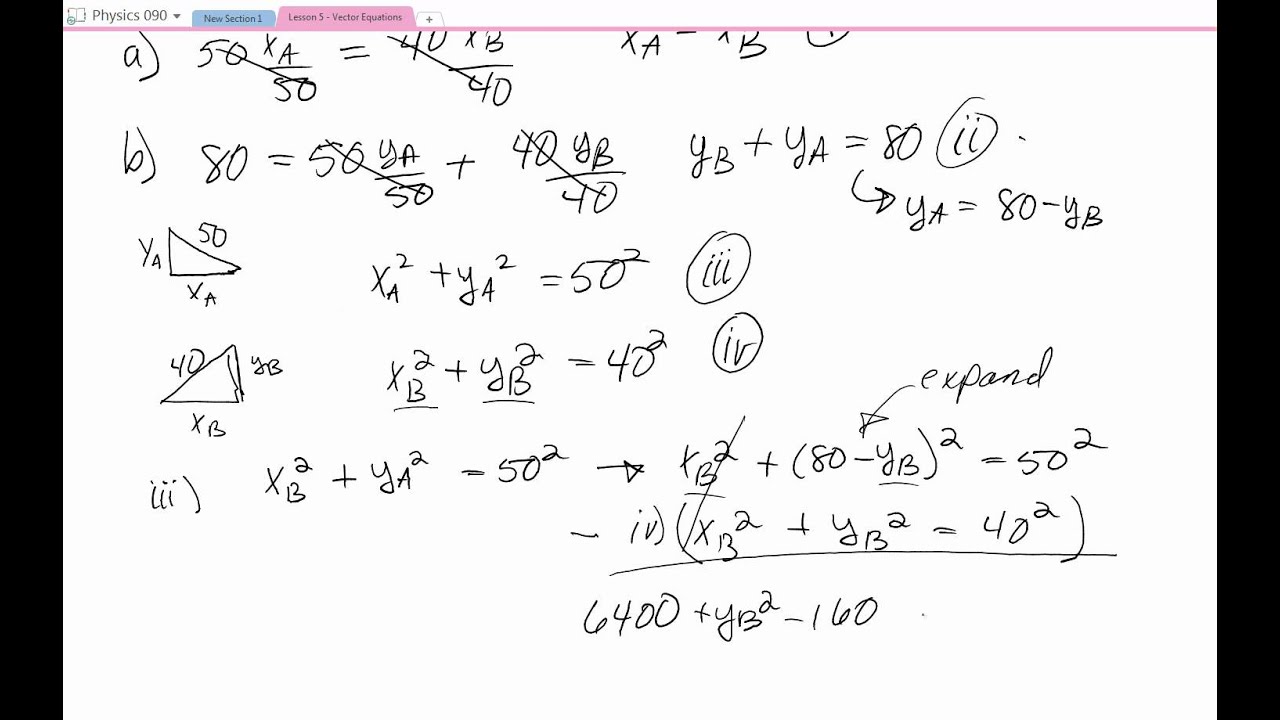 Physics 090 New Section 1 Lesson 5 - Vector Equations +
a) 50 x_A/50 = 40 x_B/40 x_A = x_B (i)
b) 80 = 50 y_A/50 + 40 y_B/40 y_B + y_A = 80 (ii)
↳ y_A = 80 - y_B
y_A 50 x_A
x_A² + y_A² = 50² (iii)
40 y_B x_B
x_B² + y_B² = 40² (iv)
expand
iii) x_B² + y_A² = 50² → x_B² + (80 - y_B)² = 50²
- iv) (x_B² + y_B² = 40²)
6400 + y_B² - 160